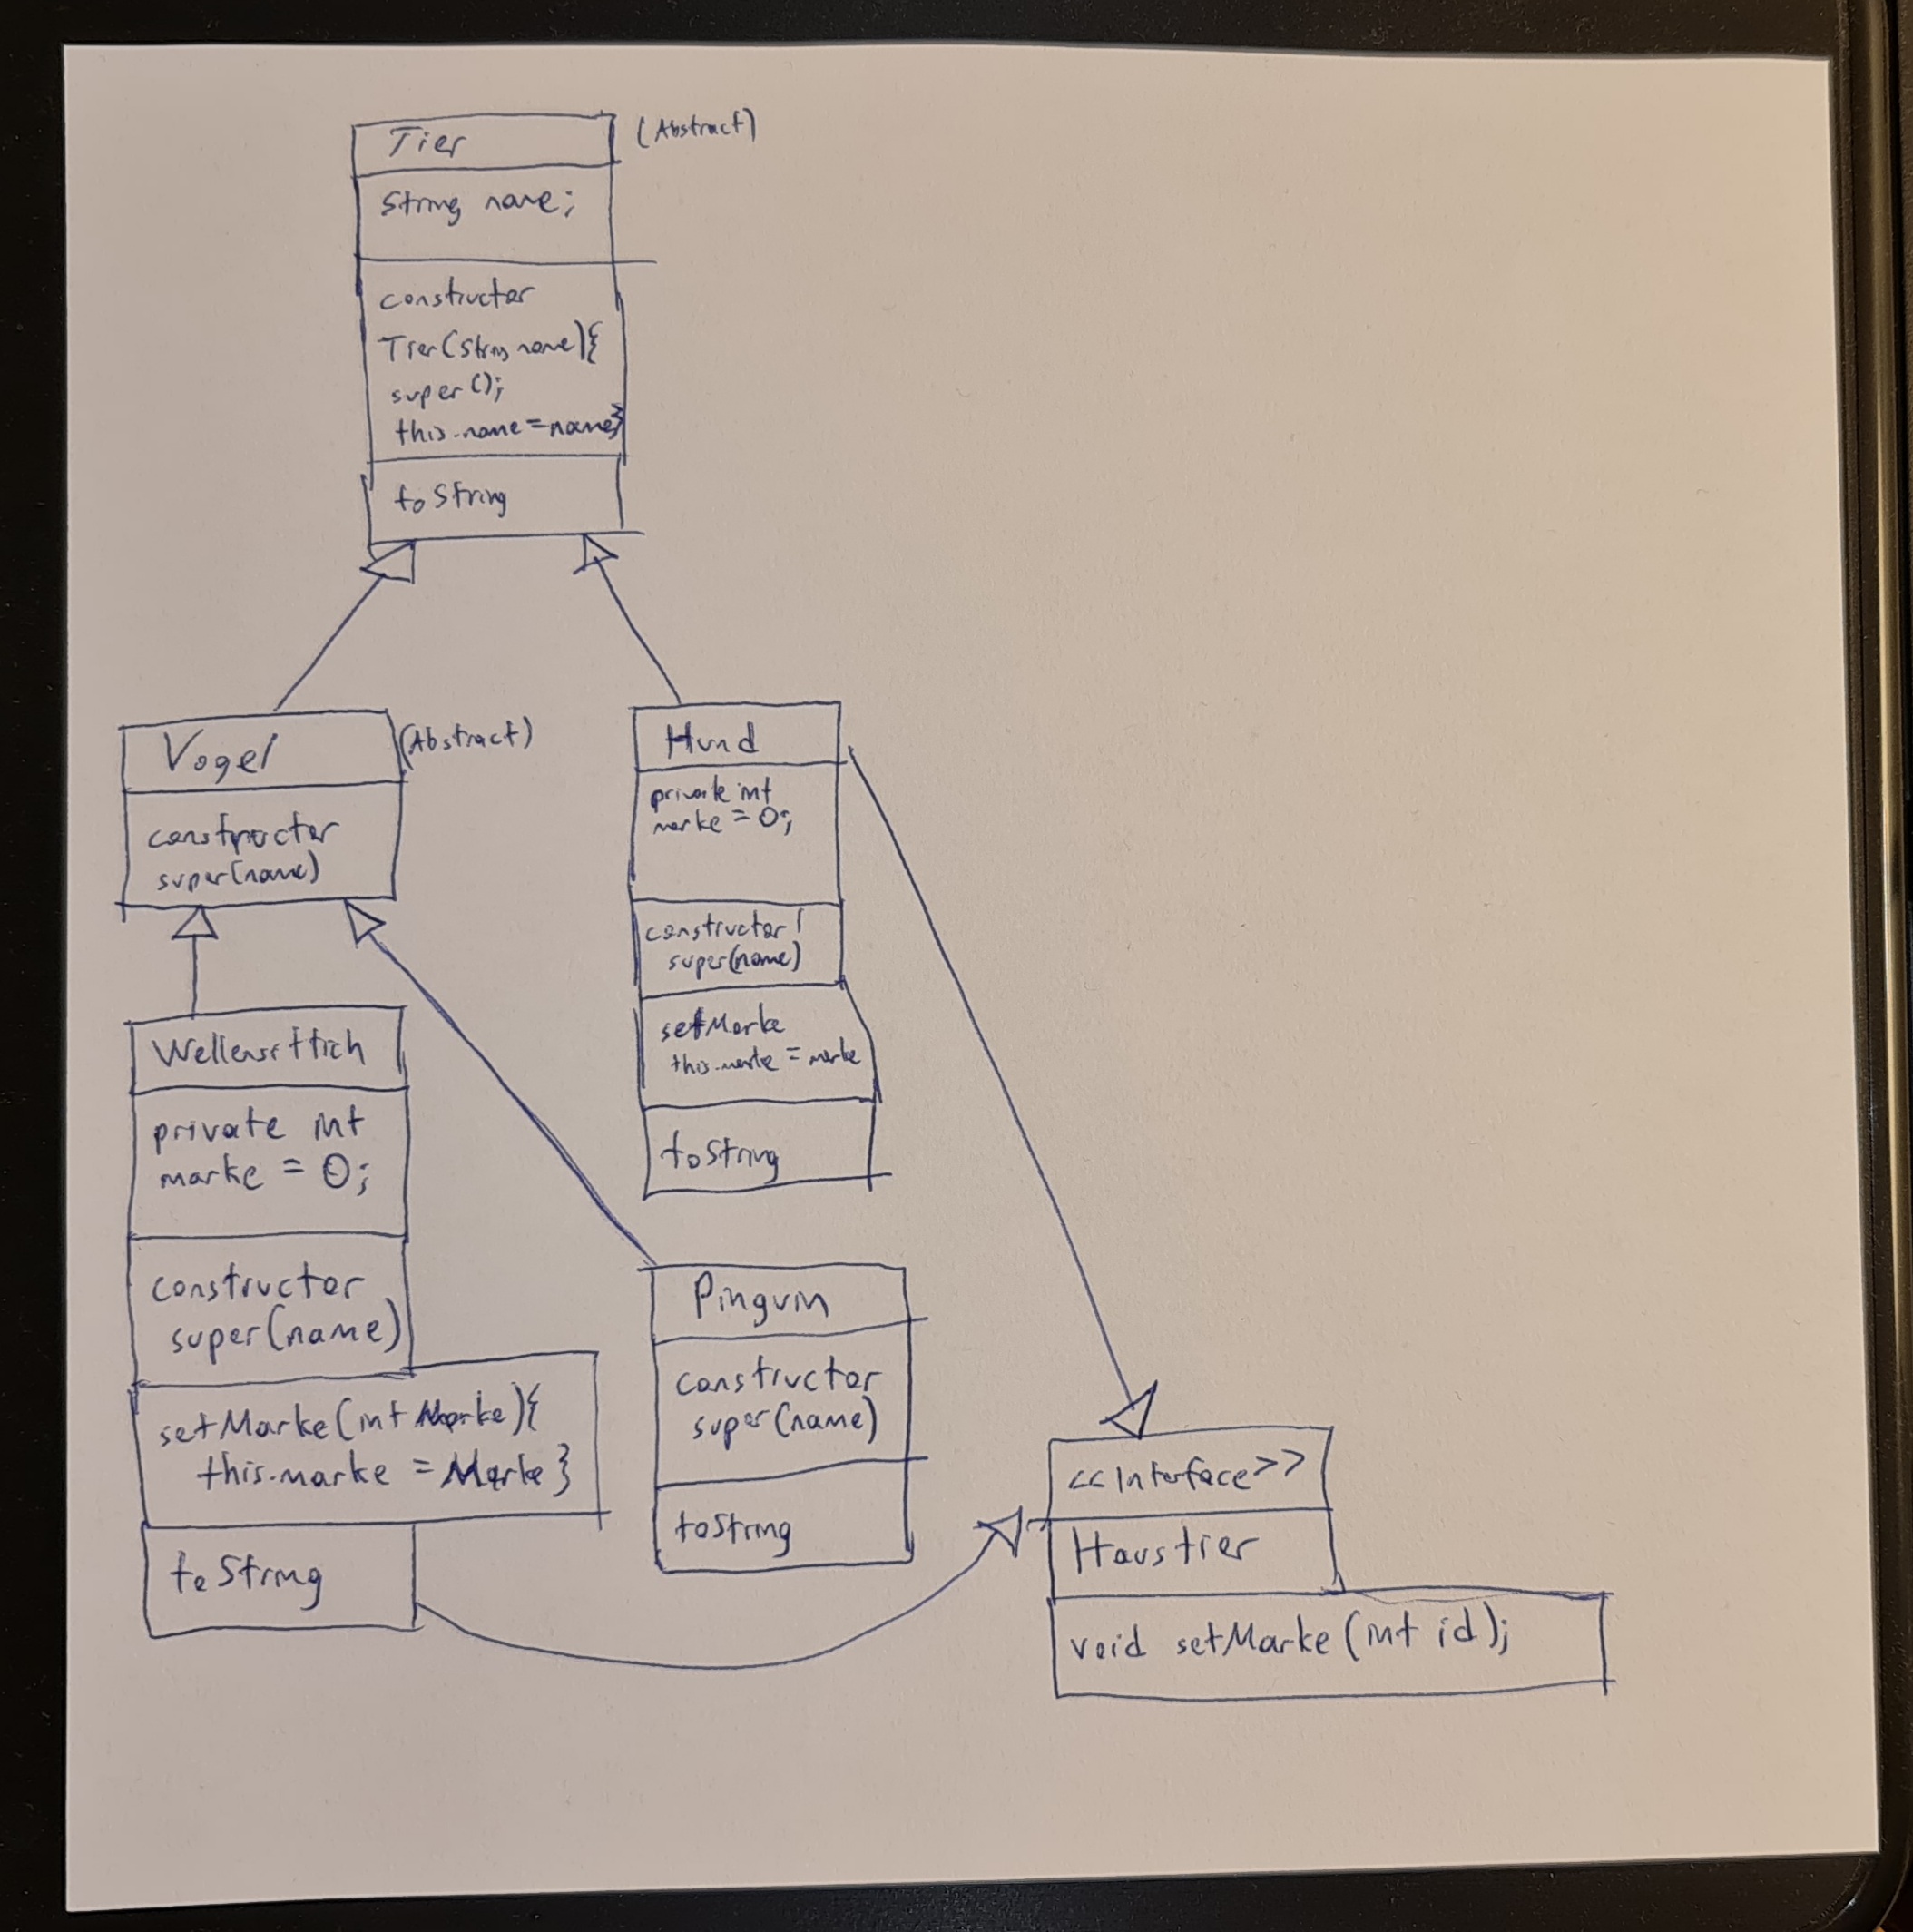 Tier
(Abstract)
String name;
constructor
Tier(String name){
super();
this.name=name}
toString
Vogel
(Abstract)
constructor
super(name)
Hund
private int
marke = 0;
constructor
super(name)
setMarke
this.marke = marke
toString
Wellensittich
private int
marke = 0;
constructor
super(name)
setMarke(int Marke){
this.marke = Marke}
toString
Pinguin
constructor
super(name)
toString
<<Interface>>
Haustier
void setMarke(int id);